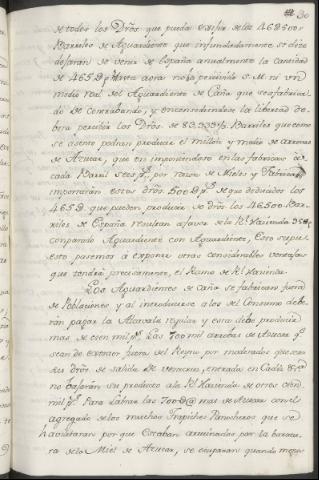 30
de todos los Dros. que puedan valuarse de los 46500
Barriles de Aguardiente que infundadamente se dice
dejarán de venir de España anualmente la cantidad
de 465 D p.s hasta aora no ha percivido S. M. ni un
medio real del Aguardiente de Caña que se á fabrica-
do de contrabando, y concediendose la libertad de-
berá percibir los Dros. de 83.333⅓ Barriles que como
se asentó podran producir el millon y medio de arrovas
de Azucar, que en imponiendo en las fabricas de
cada Barril seis p.s por razon de Mieles y Fabrica,
importarán estos dros. 500 D p.s de que deducidos los
465 D. que pueden producir de dros. los 46500 Bar-
riles de España resultan a favor de la Rl Hacienda 35 D p.s
comparando Aguardiente con Aguardiente, Esto supues-
to pasemos á exponer otras considerables ventajas
que tendrá precisamente, el Ramo de Rl Hacienda.
Los Aguardientes de caña se fabrican fuera
de Poblaciones y al introducirse a los del Consumo debe-
rán pagar la Alcavala regular y esta debe producir
mas de cien mil p.s Las 700 mil arrobas de Azucar q.e
sean de extraer fuera del Reyno por moderados que sean
sus dros. de salida de Veracruz, entrada en Cadiz &.a
no bajarán su producto a la Rl Hacienda de otros cien
mil p.s Para Labrar las 700 D @ mas de Azucar con el
agregado de los muchos Trapiches Panocheros que se
habilitaran por que estaban arruinados por la baratu-
ra de la Miel de Azucar, se ocuparan quando menos